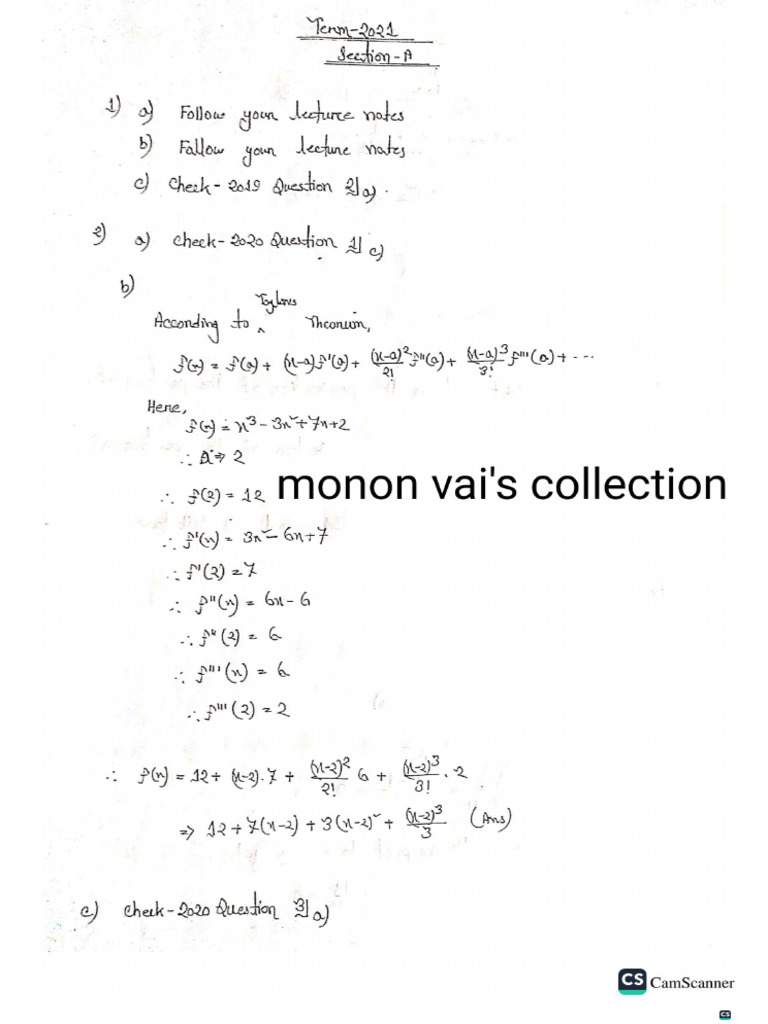 Term-2021
Section-A
1) a) Follow your lecture notes
b) Follow your lecture notes
c) Check-2019 Question 2|a).
2) a) Check-2020 Question 1|c)
b)
According to ^ Taylors Theorium,
f(x) = f(a) + (x-a)f'(a) + (x-a)²/2! f''(a) + (x-a)³/3! f'''(a) + ...
Here,
f(x) = x³ - 3x² + 7x + 2
∴ a ⇒ 2
∴ f(2) = 12
monon vai's collection
∴ f'(x) = 3x² - 6x + 7
∴ f'(2) = 7
∴ f''(x) = 6x - 6
∴ f''(2) = 6
∴ f'''(x) = 6
∴ f'''(2) = 2
∴ f(x) = 12 + (x-2).7 + (x-2)²/2! 6 + (x-2)³/3! . 2
⇒ 12 + 7(x-2) + 3(x-2)² + (x-2)³/3 (Ans)
c) Check-2020 Question 3|a)
CS CamScanner
CS